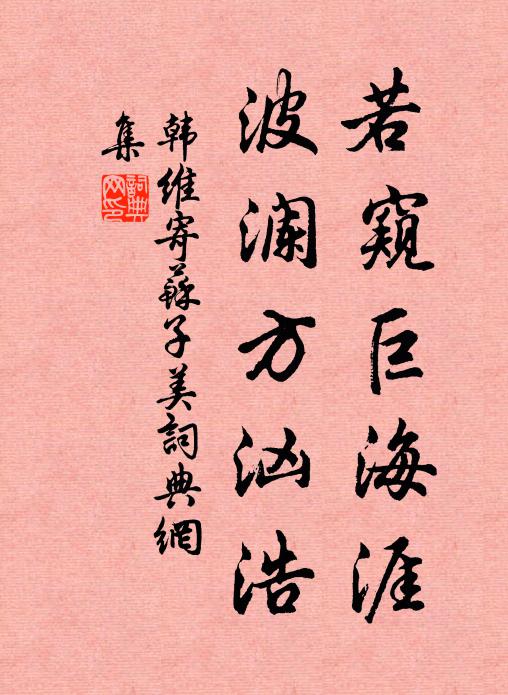 若窺巨海涯
波澜方汹浩
韩維寄蘇子美詞典網
集
詞典
网印